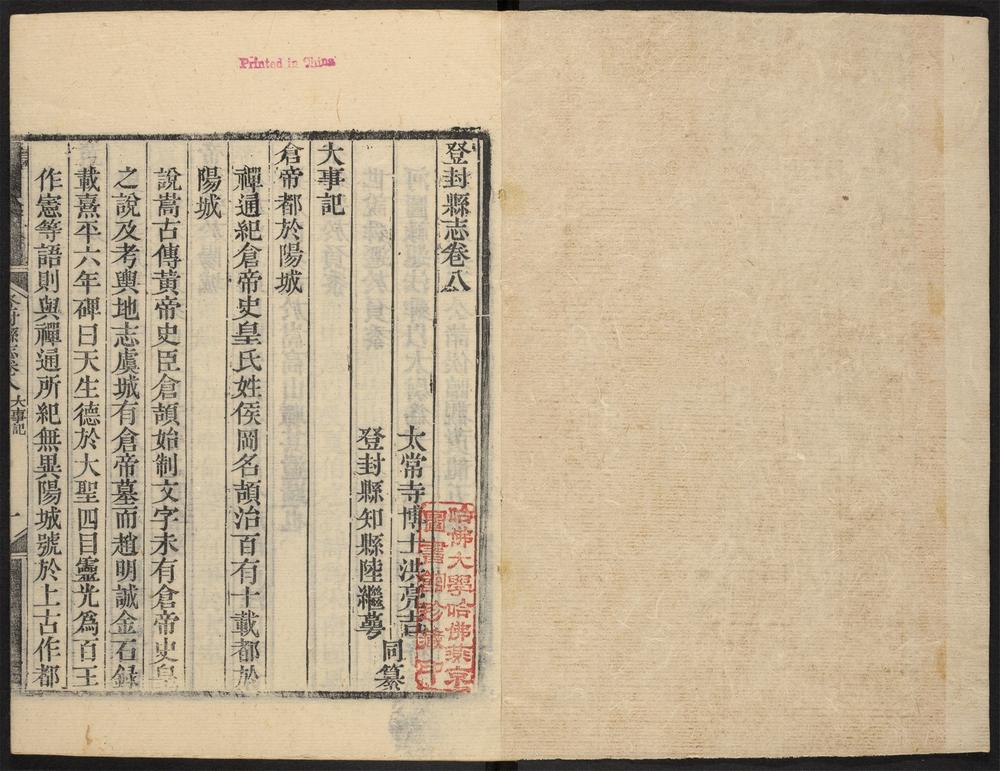 Printed in China
登封縣志卷八
太常寺博士洪亮吉
登封縣知縣陸繼萼
同纂
大事記
倉帝都於陽城
禪通紀倉帝史皇氏姓侯岡名頡治百有十載都於
陽城
說嵩古傳黃帝史臣倉頡始制文字未有倉帝史皇
之說及考輿地志虞城有倉帝墓而趙明誠金石録
載熹平六年碑曰天生德於大聖四目靈光爲百王
作憲等語則與禪通所紀無異陽城號於上古作都
登封縣志卷八 大事記
一
哈佛大學哈佛燕京
圖書館珍藏印